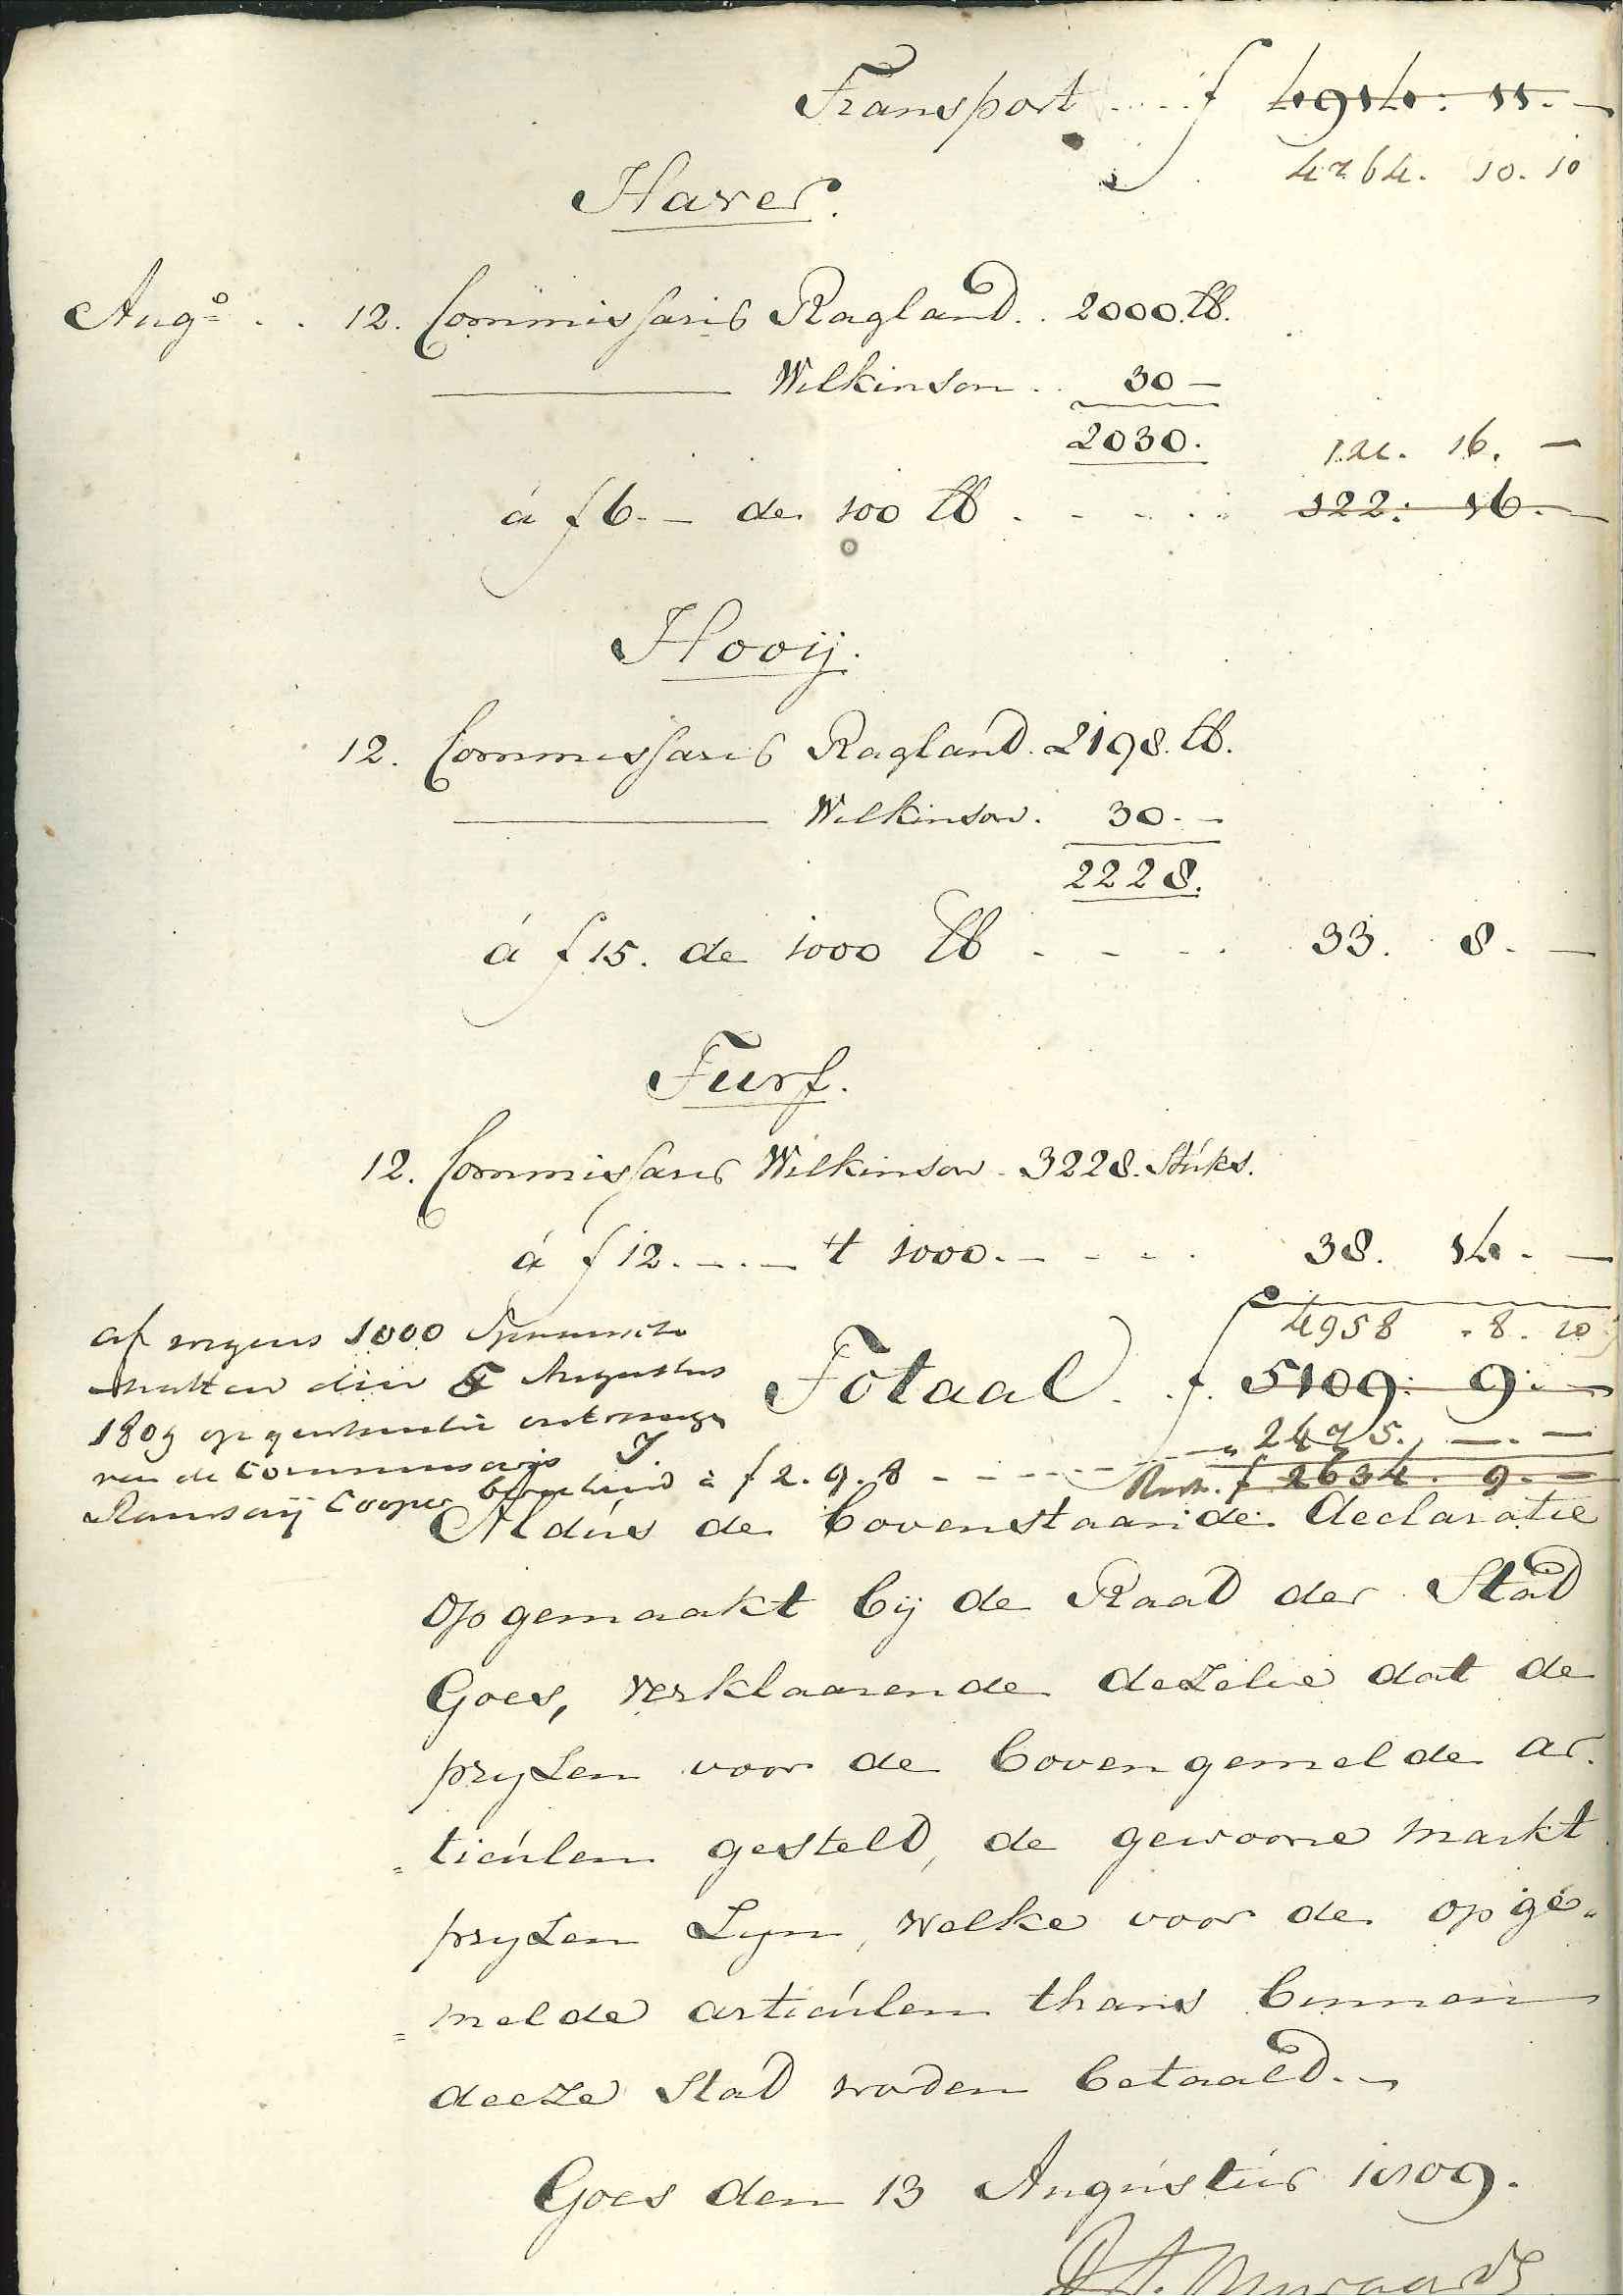 Transport .... f 4914: 11. —
4764. 10. 10
Haver.
Augo . . 12. Commissaris Ragland . . 2000 lb.
——— Wilkinson . . 30 —
2030.
121. 16. —
á f 6. — de 100 lb . - - . . 122: 16. —
Hooij.
12. Commissaris Ragland. 2198. lb.
——— Wilkinson. 30. —
2228.
á f 15. de 1000 lb - - - . 33. 8. —
Turf.
12. Commissaris Wilkinson. 3228. Stuks.
á f 12. — . — 't 1000. - - - . 38. 14. —
4958 . 8. 10
Totaal . f. 5109: 9. —
af wegens 1000
matten den 5 Augustus
1809 op
van de Commissaris J.
Ramsaij Cooper á f 2. 9. 8 - - - - 2475. —. —
Rest. f 2634. 9. —
Aldus de bovenstaande declaratie
opgemaakt bij de Raad der Stad
Goes, verklaarende dezelve dat de
pryzen voor de bovengemelde ar-
=ticulen gesteld, de gewoone markt
pryzen zyn, welke voor de opge-
=melde articulen thans binnen
deeze Stad worden betaald. —
Goes den 13 Augustus 1809.